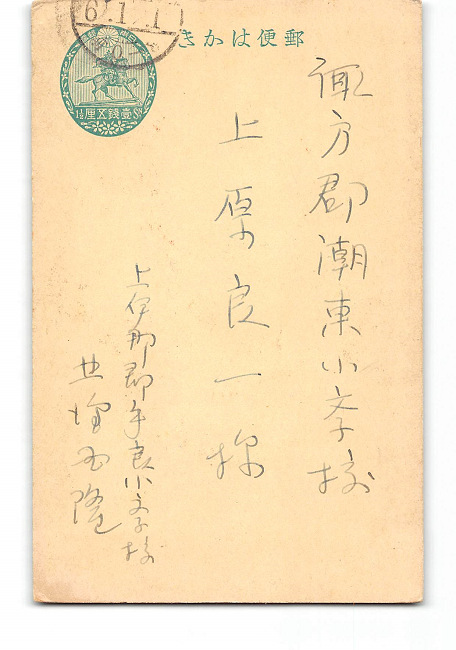 郵便はがき
6.1.1
壹錢五厘
諏方郡潮東小学校
上原良一様
上伊那郡手良小学校